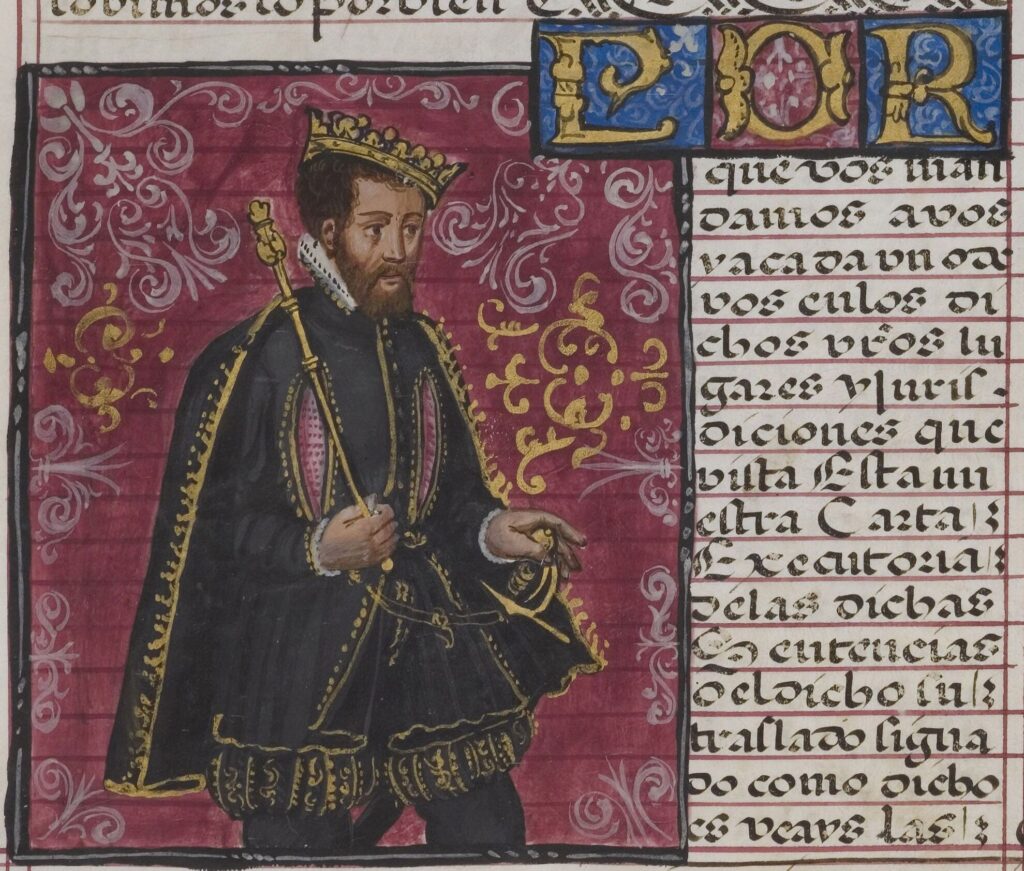 tobimos lo por bien
POR
que vos man
damos a vos
y a cada vno de
vos en los di
chos vr̃os lu
gares y juris -
diciones que
vista Esta nu
estra Carta
Executoria
de las dichas
Sentencias
o el dicho su
traslado signa
do como dicho
es veays las